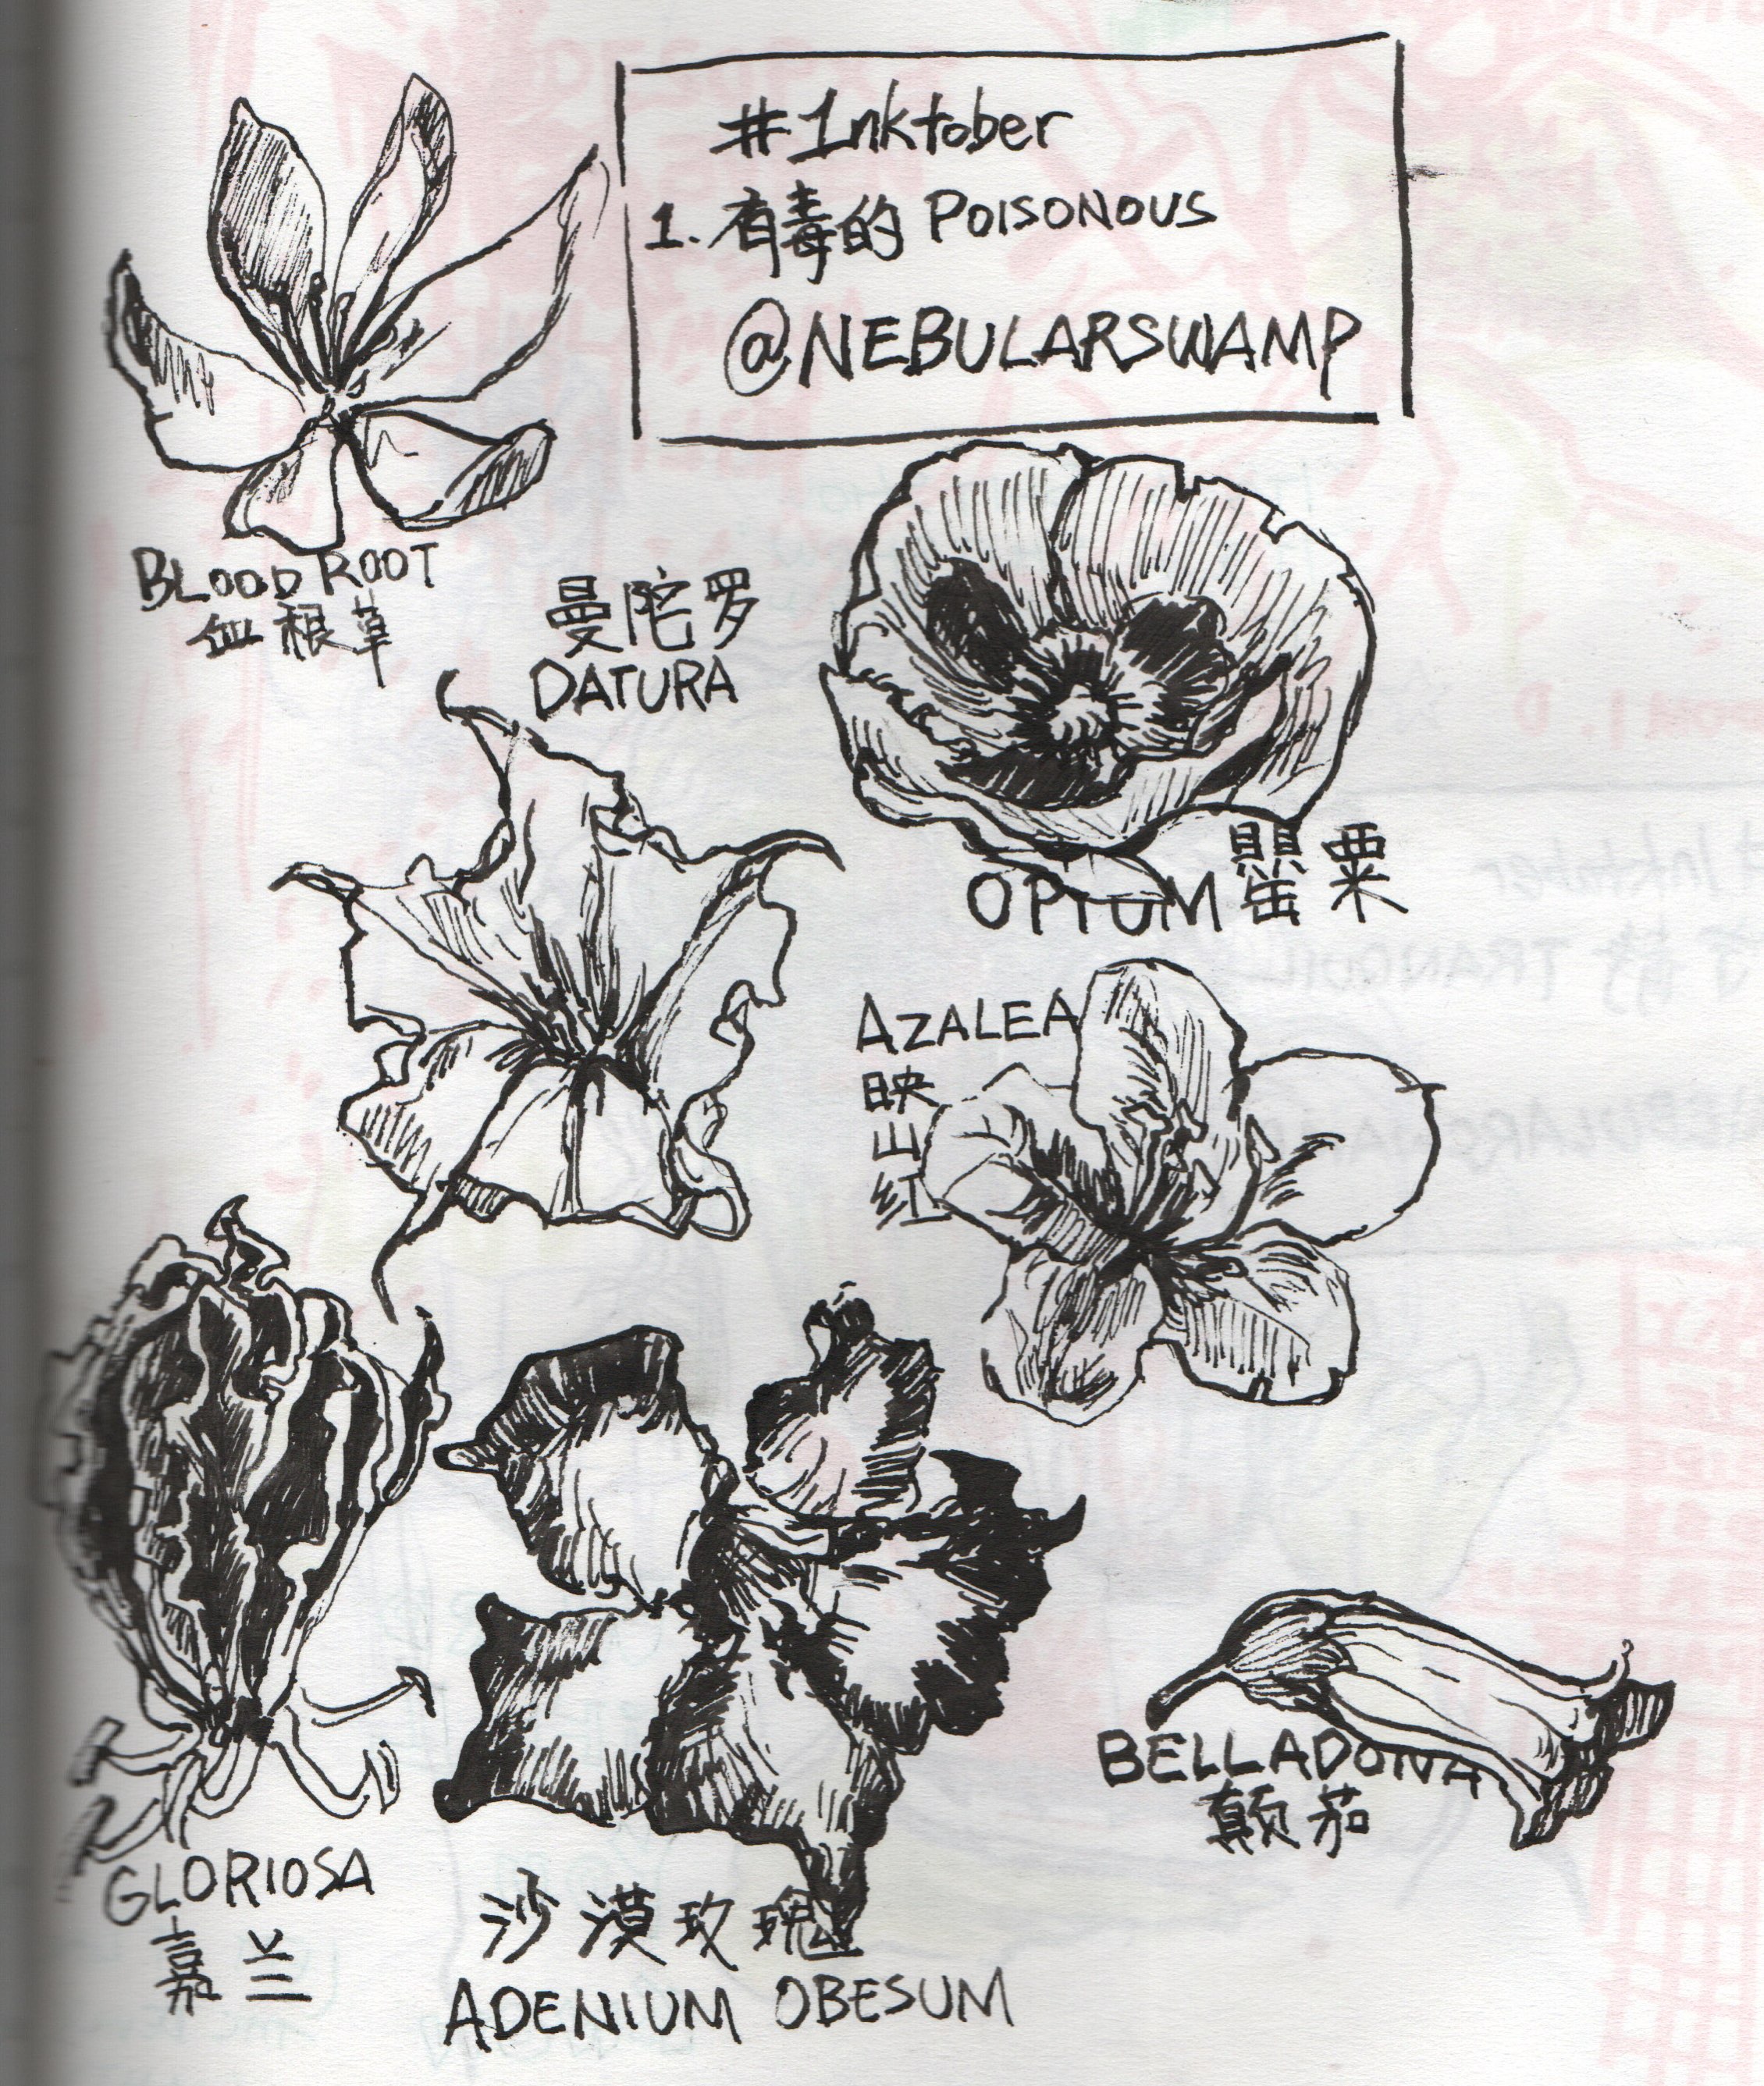 #Inktober
1. 有毒的 POISONOUS
@NEBULARSWAMP
BLOOD ROOT
血根草
曼陀罗
DATURA
OPIUM 罂粟
AZALEA
映
山
红
BELLADONA
颠茄
GLORIOSA
嘉兰
沙漠玫瑰
ADENIUM OBESUM
TRANQUIL